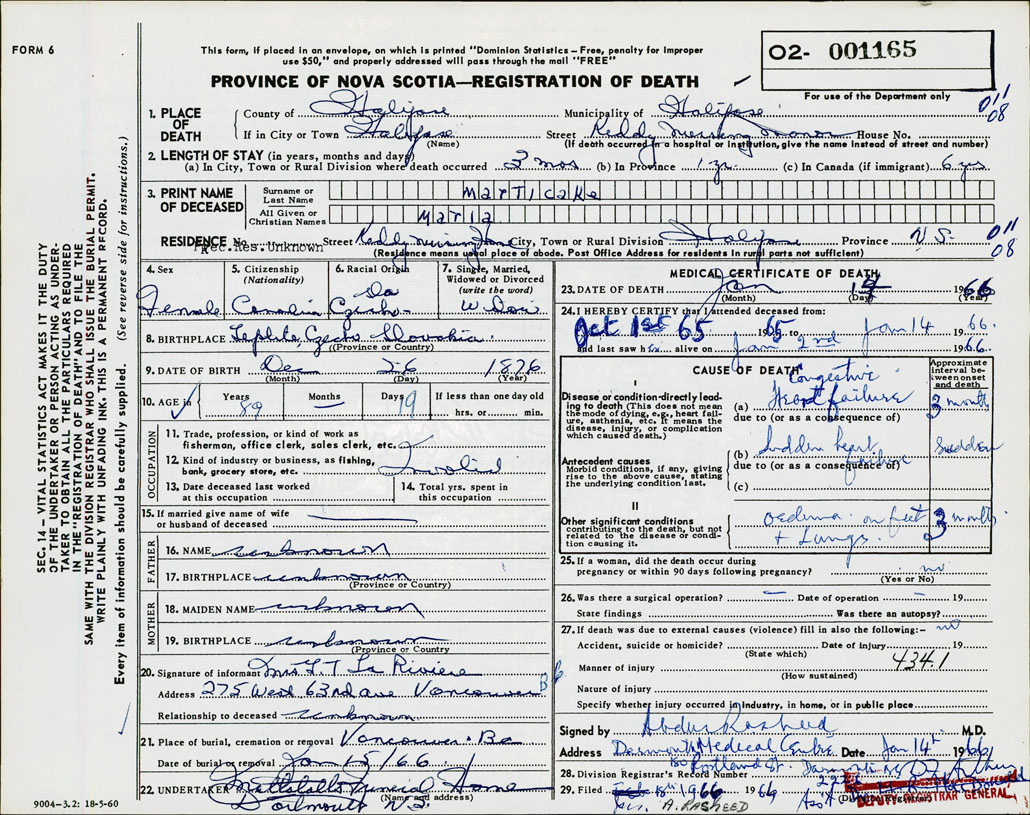 FORM 6
This form, if placed in an envelope, on which is printed "Dominion Statistics – Free, penalty for improper
use $50," and properly addressed will pass through the mail "FREE"
PROVINCE OF NOVA SCOTIA—REGISTRATION OF DEATH
02- 001165
For use of the Department only
1. PLACE OF DEATH
County of Halifax Municipality of Halifax 011 08
If in City or Town Halifax Street Reddy Nursing Manor House No.
(Name) (If death occurred in a hospital or institution, give the name instead of street and number)
2. LENGTH OF STAY (in years, months and days)
(a) In City, Town or Rural Division where death occurred 3 mos (b) In Province 1 yr. (c) In Canada (if immigrant) 6 yrs
3. PRINT NAME OF DECEASED
Surname or Last Name Marticake
All Given or Christian Names Maria
RESIDENCE No. Rec.Hs.Unknown Street Reddy Nursing Home City, Town or Rural Division Halifax Province N.S. 011 08
(Residence means usual place of abode. Post Office Address for residents in rural parts not sufficient)
4. Sex
Female
5. Citizenship
(Nationality)
6. Racial Origin
Czecho
7. Single, Married,
Widowed or Divorced
(write the word)
8. BIRTHPLACE Czecho Slovakia
(Province or Country)
9. DATE OF BIRTH Dec 26 1876
(Month) (Day) (Year)
10. AGE in Years 89 Months — Days 19 If less than one day old
hrs. or min.
OCCUPATION
11. Trade, profession, or kind of work as
fisherman, office clerk, sales clerk, etc.
12. Kind of industry or business, as fishing,
bank, grocery store, etc. Invalid
13. Date deceased last worked
at this occupation
14. Total yrs. spent in
this occupation
15. If married give name of wife
or husband of deceased
FATHER
16. NAME unknown
17. BIRTHPLACE unknown
(Province or Country)
MOTHER
18. MAIDEN NAME unknown
19. BIRTHPLACE unknown
(Province or Country)
20. Signature of informant Mrs F.T La Riviere
Address 275 West 63rd ave Vancouver B
Relationship to deceased unknown
21. Place of burial, cremation or removal Vancouver. Bc
Date of burial or removal Jan 15/66
22. UNDERTAKER Funeral Home
(Name and address)
Dartmouth N.S.
MEDICAL CERTIFICATE OF DEATH
23. DATE OF DEATH Jan 14 1966
(Month) (Day) (Year)
24. I HEREBY CERTIFY that I attended deceased from:
Oct 1st 65 1965 to Jan 14 1966.
and last saw her alive on Jan 2nd 1966.
CAUSE OF DEATH
Approximate interval between onset and death
I
Disease or condition directly leading to death (This does not mean the mode of dying, e.g., heart failure, asthenia, etc. It means the disease, injury, or complication which caused death.)
(a) Congestive Heart failure 3 months
due to (or as a consequence of)
Antecedent causes
Morbid conditions, if any, giving rise to the above cause, stating the underlying condition last.
(b) Sudden heart failure sudden
due to (or as a consequence of)
(c)
II
Other significant conditions
contributing to the death, but not related to the disease or condition causing it.
oedema on feet + Lungs. 3 months
25. If a woman, did the death occur during
pregnancy or within 90 days following pregnancy? no
(Yes or No)
26. Was there a surgical operation? — Date of operation — 19
State findings Was there an autopsy? no
27. If death was due to external causes (violence) fill in also the following:–
Accident, suicide or homicide? Date of injury 19
(State which)
Manner of injury 434.1
(How sustained)
Nature of injury
Specify whether injury occurred in industry, in home, or in public place
Signed by Abdur Rasheed M.D.
Address Dartmouth Medical Centre Date Jan 14th 1966
Portland St.
28. Division Registrar's Record Number
29. Filed 18th 1966 1966
(Division Registrar)
DEPUTY REGISTRAR GENERAL
A. RASHEED
9004–3.2: 18-5-60
SEC. 14 – VITAL STATISTICS ACT MAKES IT THE DUTY
OF THE UNDERTAKER OR PERSON ACTING AS UNDER-
TAKER TO OBTAIN ALL THE PARTICULARS REQUIRED
IN THE "REGISTRATION OF DEATH" AND TO FILE THE
SAME WITH THE DIVISION REGISTRAR WHO SHALL ISSUE THE BURIAL PERMIT.
WRITE PLAINLY WITH UNFADING INK. THIS IS A PERMANENT RECORD.
Every item of information should be carefully supplied. (See reverse side for instructions.)